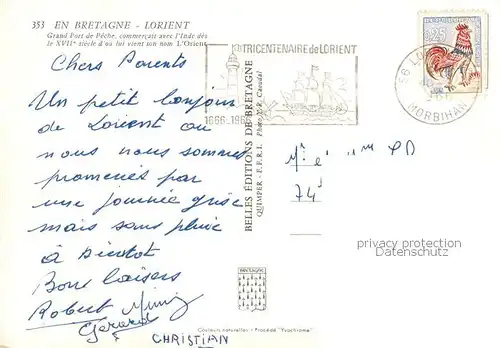 353 EN BRETAGNE - LORIENT
Grand Port de Pêche, commerçait avec l'Inde dès
le XVIIe siècle d'où lui vient son nom L'Orient
Chers Parents
Un petit bonjour
de Lorient ou
nous nous sommes
promenés par
une journée grise
mais sans pluie
à Bientot
Bons baisers
Robert Mimi
Gérard
CHRISTIAN
TRICENTENAIRE de LORIENT
1666-1966
56 LO
MORBIHAN
0,25
BELLES ÉDITIONS DE BRETAGNE
QUIMPER - E.F.R.L. Photo
Mr et Mme PD
74
privacy protection
Datenschutz
BRETAGNE
Couleurs naturelles - Procédé "Yvochrome"